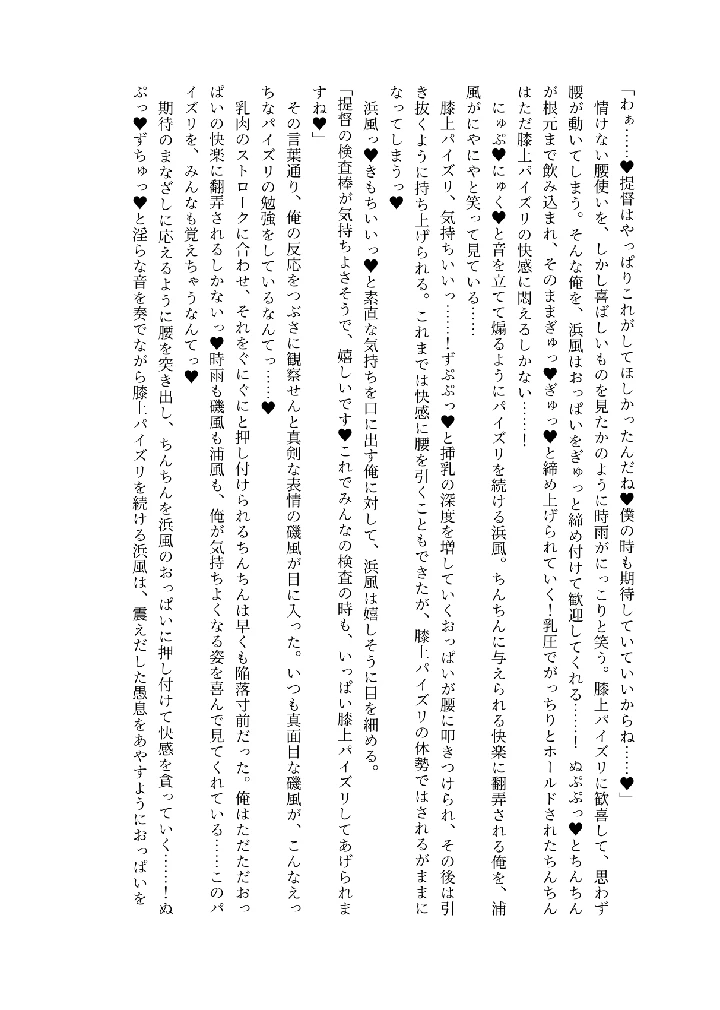 「わぁ……♥提督はやっぱりこれがしてほしかったんだね♥僕の時も期待していていいからね……♥」
情けない腰使いを、しかし喜ばしいものを見たかのように時雨がにっこりと笑う。膝上パイズリに歓喜して、思わず
腰が動いてしまう。そんな俺を、浜風はおっぱいをぎゅっと締め付けて歓迎してくれる……！　ぬぷぷっ♥とちんちん
が根元まで飲み込まれ、そのままぎゅっ♥ぎゅっ♥と締め上げられていく！乳圧でがっちりとホールドされたちんちん
はただ膝上パイズリの快感に悶えるしかない……！
にゅぷ♥にゅく♥と音を立てて煽るようにパイズリを続ける浜風。ちんちんに与えられる快楽に翻弄される俺を、浦
風がにやにやと笑って見ている……
膝上パイズリ、気持ちいいっ……！ずぷぷっ♥と挿乳の深度を増していくおっぱいが腰に叩きつけられ、その後は引
き抜くように持ち上げられる。これまでは快感に腰を引くこともできたが、膝上パイズリの体勢ではされるがままに
なってしまうっ♥
浜風っ♥きもちいいっ♥と素直な気持ちを口に出す俺に対して、浜風は嬉しそうに目を細める。
「提督の検査棒が気持ちよさそうで、嬉しいです♥これでみんなの検査の時も、いっぱい膝上パイズリしてあげられま
すね♥」
その言葉通り、俺の反応をつぶさに観察せんと真剣な表情の磯風が目に入った。いつも真面目な磯風が、こんなえっ
ちなパイズリの勉強をしているなんてっ……♥
乳肉のストロークに合わせ、それをぐにぐにと押し付けられるちんちんは早くも陥落寸前だった。俺はただただおっ
ぱいの快楽に翻弄されるしかないっ♥時雨も磯風も浦風も、俺が気持ちよくなる姿を喜んで見てくれている……このパ
イズリを、みんなも覚えちゃうなんてっ♥
期待のまなざしに応えるように腰を突き出し、ちんちんを浜風のおっぱいに押し付けて快感を貪っていく……！ぬ
ぷっ♥ずちゅっ♥と淫らな音を奏でながら膝上パイズリを続ける浜風は、震えだした愚息をあやすようにおっぱいを